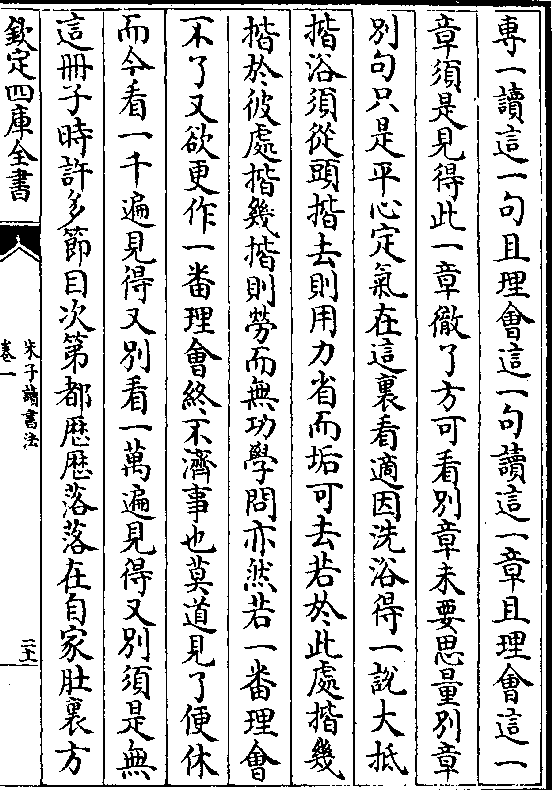 專一讀這一句且理會這一句讀這一章且理會這一
章須是見得此一章徹了方可看別章未要思量別章
別句只是平心定氣在這裏看適因洗浴得一說大抵
揩浴須從頭揩去則用力省而垢可去若於此處揩幾
揩於彼處揩幾揩則勞而無功學問亦然若一番理會
不了又欲更作一番理會終不濟事也莫道見了便休
而今看一千遍見得又別看一萬遍見得又別須是無
這冊子時許多節目次第都歴歴落落在自家肚裏方
欽定四庫全書
朱子讀書法
卷一
二十一